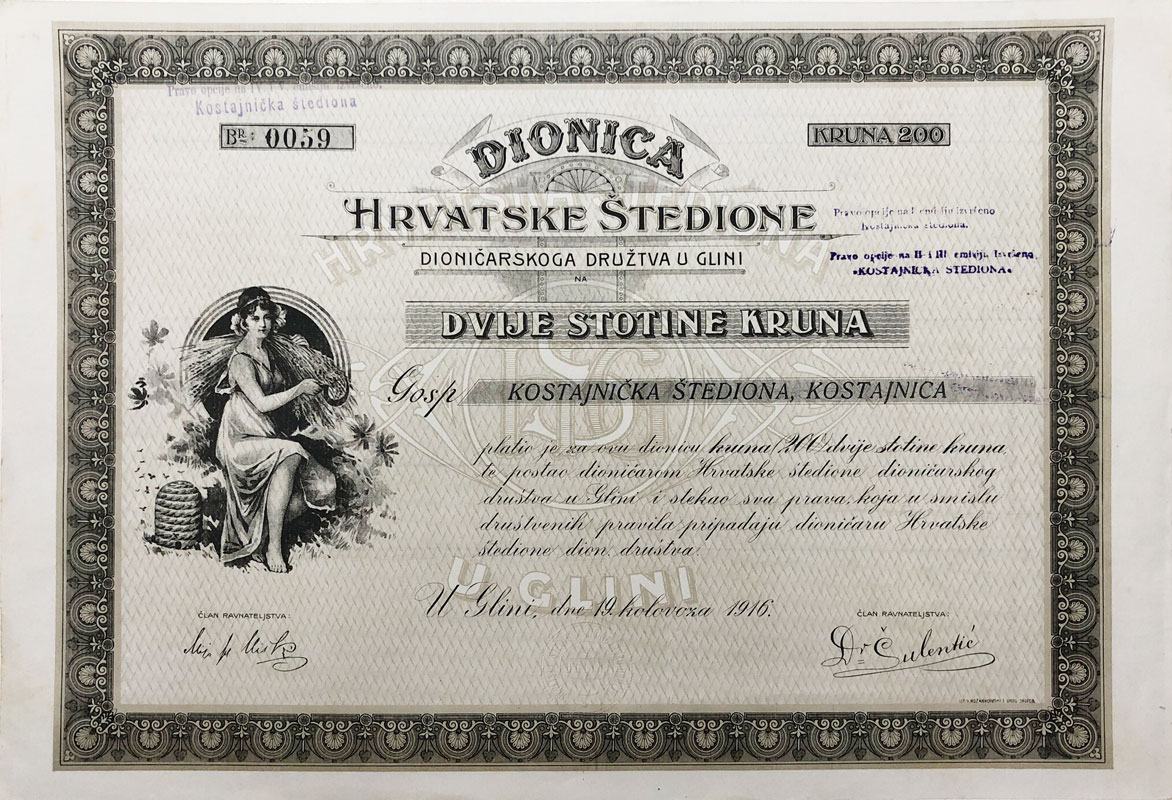 Pravo opcije na IV. i V. emisiju izvršeno,
Kostajnička štediona
BR: 0059
DIONICA
KRUNA 200
HRVATSKE ŠTEDIONE
Pravo opcije na I emisiju izvršeno
Kostajnička štediona.
DIONIČARSKOGA DRUŽTVA U GLINI
Pravo opcije na II i III emisiju izvršeno,
"KOSTAJNIČKA ŠTEDIONA"
NA
DVIJE STOTINE KRUNA
Gosp KOSTAJNIČKA ŠTEDIONA, KOSTAJNICA
platio je za ovu dionicu kruna (200) dvije stotine kruna,
te postao dioničarom Hrvatske štedione dioničarskog
društva u Glini i stekao sva prava, koja u smislu
društvenih pravila pripadaju dioničaru Hrvatske
štedione dion. društva.
U GLINI
U Glini, dne 19. kolovoza 1916.
ČLAN RAVNATELJSTVA:
ČLAN RAVNATELJSTVA:
Dr Šulentić